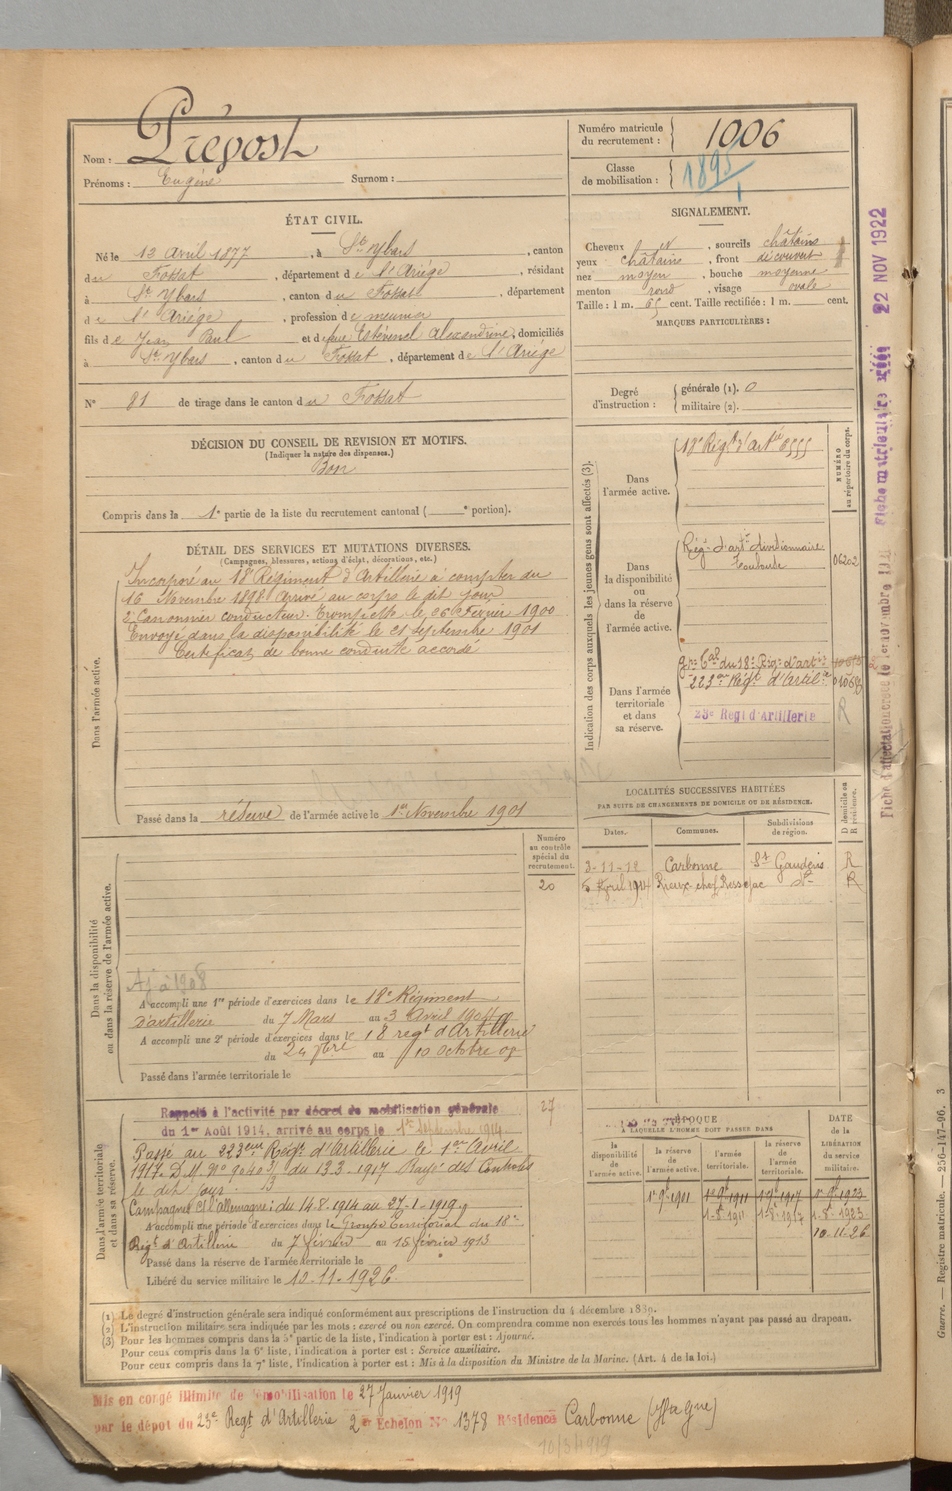 Nom : Prépost
Prénoms : Eugène Surnom :
Numéro matricule du recrutement : 1006
Classe de mobilisation : 1895
ÉTAT CIVIL.
Né le 13 Avril 1877, à St Ybars, canton
du Fossat, département de l'Ariége, résidant
à St Ybars, canton du Fossat, département
de l'Ariége, profession de meunier
fils de Jean Paul et de feue Estévenel Alexandrine, domiciliés
à St Ybars, canton du Fossat, département de l'Ariége
N° 81 de tirage dans le canton du Fossat
SIGNALEMENT.
Cheveux , sourcils châtains
yeux châtains, front découvert
nez moyen, bouche moyenne
menton rond, visage ovale
Taille : 1 m. 65 cent. Taille rectifiée : 1 m. cent.
MARQUES PARTICULIÈRES :
Degré d'instruction : générale (1). 0
militaire (2).
DÉCISION DU CONSEIL DE REVISION ET MOTIFS.
(Indiquer la nature des dispenses.)
Bon
Compris dans la 1e partie de la liste du recrutement cantonal ( e portion).
DÉTAIL DES SERVICES ET MUTATIONS DIVERSES.
(Campagnes, blessures, actions d'éclat, décorations, etc.)
Dans l'armée active.
Incorporé au 18e Régiment d'Artillerie à compter du
16 Novembre 1898 Arrivé au corps le dit jour
2e Canonnier conducteur. Trompette le 26 Février 1900
Envoyé dans la disponibilité le 21 septembre 1901
Certificat de bonne conduite accordé
Passé dans la réserve de l'armée active le 1er Novembre 1901
Indication des corps auxquels les jeunes gens sont affectés (3).
NUMÉRO au répertoire du corps.
Dans l'armée active.
18e Régt d'Artie 6555
Dans la disponibilité ou dans la réserve de l'armée active.
Régt d'artie divisionnaire
Toulouse
06202
Dans l'armée territoriale et dans sa réserve.
Gpe Cal du 18e Régt d'artie
223me Régt d'Artille
23e Regt d'Artillerie
R
LOCALITÉS SUCCESSIVES HABITÉES
PAR SUITE DE CHANGEMENTS DE DOMICILE OU DE RÉSIDENCE.
D domicile ou R résidence.
Dates. Communes. Subdivisions de région.
3-11-12 Carbonne St Gaudens R
Avril 1914 do R
Numéro au contrôle spécial du recrutement.
20
Dans la disponibilité ou dans la réserve de l'armée active.
Aj à 1908
A accompli une 1re période d'exercices dans le 18e Régiment
d'artillerie du 7 Mars au 3 Avril 1904
A accompli une 2e période d'exercices dans le 18 regt d'Artillerie
du 24 7bre au 10 Octobre 09
Passé dans l'armée territoriale le
Dans l'armée territoriale et dans sa réserve.
27
Rappelé à l'activité par décret de mobilisation générale
du 1er Août 1914. arrivé au corps le 1er Septembre 1914
Passé au 223eme Régt d'Artillerie le 1er Avril
1917. D.M. N° 9040 3/13 du 13.3.1917 Rayé des Contrôles
le dit jour
Campagnes C/l'allemagne : du 14.8.1914 au 27-1-1919
A accompli une période d'exercices dans le Groupe territorial du 18e
Régt d'Artillerie du 7 février au 15 février 1913
Passé dans la réserve de l'armée territoriale le
Libéré du service militaire le 10-11-1926
ÉPOQUE
À LAQUELLE L'HOMME DOIT PASSER DANS
DATE de la LIBÉRATION du service militaire.
la disponibilité de l'armée active.
la réserve de l'armée active.
l'armée territoriale.
la réserve de l'armée territoriale.
1er 9b 1911 1er 9b 1911 1er 9b 1917 1er 9b 1923
1-8-1911 1-8-1917 1-8-1923
10-11-26
(1) Le degré d'instruction générale sera indiqué conformément aux prescriptions de l'instruction du 4 décembre 1889.
(2) L'instruction militaire sera indiquée par les mots : exercé ou non exercé. On comprendra comme non exercés tous les hommes n'ayant pas passé au drapeau.
(3) Pour les hommes compris dans la 5e partie de la liste, l'indication à porter est : Ajourné.
Pour ceux compris dans la 6e liste, l'indication à porter est : Service auxiliaire.
Pour ceux compris dans la 7e liste, l'indication à porter est : Mis à la disposition du Ministre de la Marine. (Art. 4 de la loi.)
Mis en congé illimité de démobilisation le 27 Janvier 1919
par le dépot du 23e Regt d'Artillerie 2e Echelon N° 1378 Résidence Carbonne (Hte Gne)
10/3/1919
Fiche matriculaire créée 22 NOV 1922
Guerre. — Registre matricule. — 256-147-96. 3